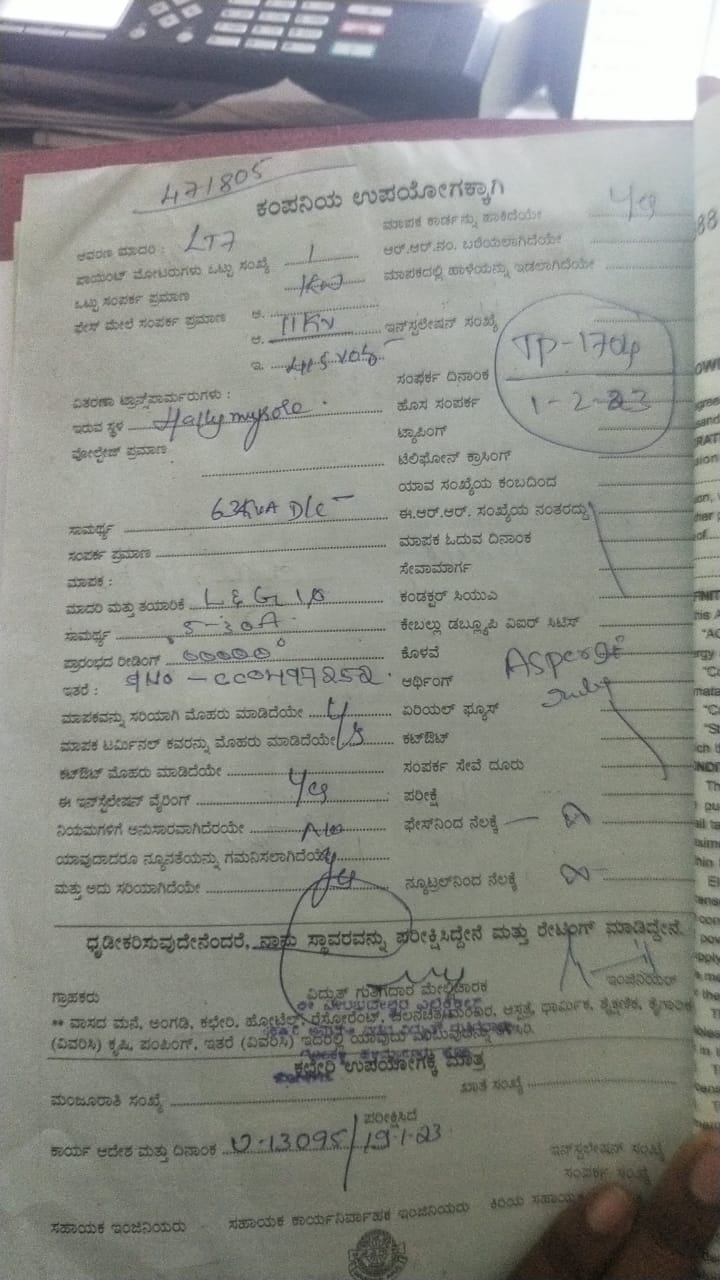 471805
ಕಂಪನಿಯ ಉಪಯೋಗಕ್ಕಾಗಿ
ಆವರಣ ಮಾದರಿ : LT7
ಪಾಯಿಂಟ್ ಮೋಟರುಗಳು ಒಟ್ಟು ಸಂಖ್ಯೆ 1
ಒಟ್ಟು ಸಂಪರ್ಕ ಪ್ರಮಾಣ 1KW
ಫೇಸ್ ಮೇಲೆ ಸಂಪರ್ಕ ಪ್ರಮಾಣ ಅ.
ಆ. 11KV
ಇ.
ವಿತರಣಾ ಟ್ರಾನ್ಸ್‌ಫಾರ್ಮರುಗಳು :
ಇರುವ ಸ್ಥಳ Hallymysore
ವೋಲ್ಟೇಜ್ ಪ್ರಮಾಣ
ಸಾಮರ್ಥ್ಯ 63KVA D/C
ಸಂಪರ್ಕ ಪ್ರಮಾಣ
ಮಾಪಕ :
ಮಾದರಿ ಮತ್ತು ತಯಾರಿಕೆ L&G 1Ø
ಸಾಮರ್ಥ್ಯ 5-30A
ಪ್ರಾರಂಭದ ರೀಡಿಂಗ್ 00000
ಇತರೆ : SNo - CC0497252
ಮಾಪಕವನ್ನು ಸರಿಯಾಗಿ ಮೊಹರು ಮಾಡಿದೆಯೇ
ಮಾಪಕ ಟರ್ಮಿನಲ್ ಕವರನ್ನು ಮೊಹರು ಮಾಡಿದೆಯೇ
ಕಟ್‌ಔಟ್ ಮೊಹರು ಮಾಡಿದೆಯೇ
ಈ ಇನ್‌ಸ್ಟಲೇಷನ್ ವೈರಿಂಗ್ Yes
ನಿಯಮಗಳಿಗೆ ಅನುಸಾರವಾಗಿದೆರಯೇ No
ಯಾವುದಾದರೂ ನ್ಯೂನತೆಯನ್ನು ಗಮನಿಸಲಾಗಿದೆಯೇ
ಮತ್ತು ಅದು ಸರಿಯಾಗಿದೆಯೇ Yes
ಮಾಪಕ ಕಾರ್ಡನ್ನು ಹಾಕಿದೆಯೇ Yes
ಆರ್.ಆರ್.ನಂ. ಬರೆಯಲಾಗಿದೆಯೇ
ಮಾಪಕದಲ್ಲಿ ಹಾಳೆಯನ್ನು ಇಡಲಾಗಿದೆಯೇ
ಇನ್‌ಸ್ಟಲೇಷನ್ ಸಂಖ್ಯೆ TP-1704
ಸಂಪರ್ಕ ದಿನಾಂಕ
ಹೊಸ ಸಂಪರ್ಕ 1-2-23
ಟ್ಯಾಪಿಂಗ್
ಟೆಲಿಫೋನ್ ಕ್ರಾಸಿಂಗ್
ಯಾವ ಸಂಖ್ಯೆಯ ಕಂಬದಿಂದ
ಈ.ಆರ್.ಆರ್. ಸಂಖ್ಯೆಯ ನಂತರದ್ದು
ಮಾಪಕ ಓದುವ ದಿನಾಂಕ
ಸೇವಾಮಾರ್ಗ
ಕಂಡಕ್ಟರ್ ಸಿಯುವಿ
ಕೇಬಲ್ಲು ಡಬ್ಲ್ಯೂಪಿ ವಿಐರ್ ಸಿಟಿಸ್
ಕೊಳವೆ
ಆರ್ಥಿಂಗ್
ಏರಿಯಲ್ ಫ್ಯೂಸ್
ಕಟ್‌ಔಟ್
ಸಂಪರ್ಕ ಸೇವೆ ದೂರು
ಪರೀಕ್ಷೆ
ಫೇಸ್‌ನಿಂದ ನೆಲಕ್ಕೆ
ನ್ಯೂಟ್ರಲ್‌ನಿಂದ ನೆಲಕ್ಕೆ
ಧೃಡೀಕರಿಸುವುದೇನೆಂದರೆ, ನಾನು ಸ್ಥಾವರವನ್ನು ಪರೀಕ್ಷಿಸಿದ್ದೇನೆ ಮತ್ತು ರೇಟಿಂಗ್ ಮಾಡಿದ್ದೇನೆ.
ಗ್ರಾಹಕರು ವಿದ್ಯುತ್ ಗುತ್ತಿಗೆದಾರ ಮೇಲ್ವಿಚಾರಕ ಇಂಜಿನಿಯರ್
** ವಾಸದ ಮನೆ, ಅಂಗಡಿ, ಕಛೇರಿ, ಹೋಟೆಲ್, ರೆಸ್ಟೋರೆಂಟ್, ಆಸ್ಪತ್ರೆ, ಧಾರ್ಮಿಕ, ಶೈಕ್ಷಣಿಕ, ಕೈಗಾರಿಕ
(ವಿವರಿಸಿ) ಕೃಷಿ, ಪಂಪಿಂಗ್, ಇತರೆ (ವಿವರಿಸಿ)
ಕಛೇರಿ ಉಪಯೋಗಕ್ಕೆ ಮಾತ್ರ
ಮಂಜೂರಾತಿ ಸಂಖ್ಯೆ ಖಾತೆ ಸಂಖ್ಯೆ
ಪರೀಕ್ಷಿಸಿದೆ
ಕಾರ್ಯ ಆದೇಶ ಮತ್ತು ದಿನಾಂಕ 13095/19-1-23 ಇನ್‌ಸ್ಟಲೇಷನ್ ಸಂಖ್ಯೆ
ಸಂಪರ್ಕ ಸಂಖ್ಯೆ
ಸಹಾಯಕ ಇಂಜಿನಿಯರು ಸಹಾಯಕ ಕಾರ್ಯನಿರ್ವಾಹಕ ಇಂಜಿನಿಯರು ಕಿರಿಯ ಸಹಾಯಕ